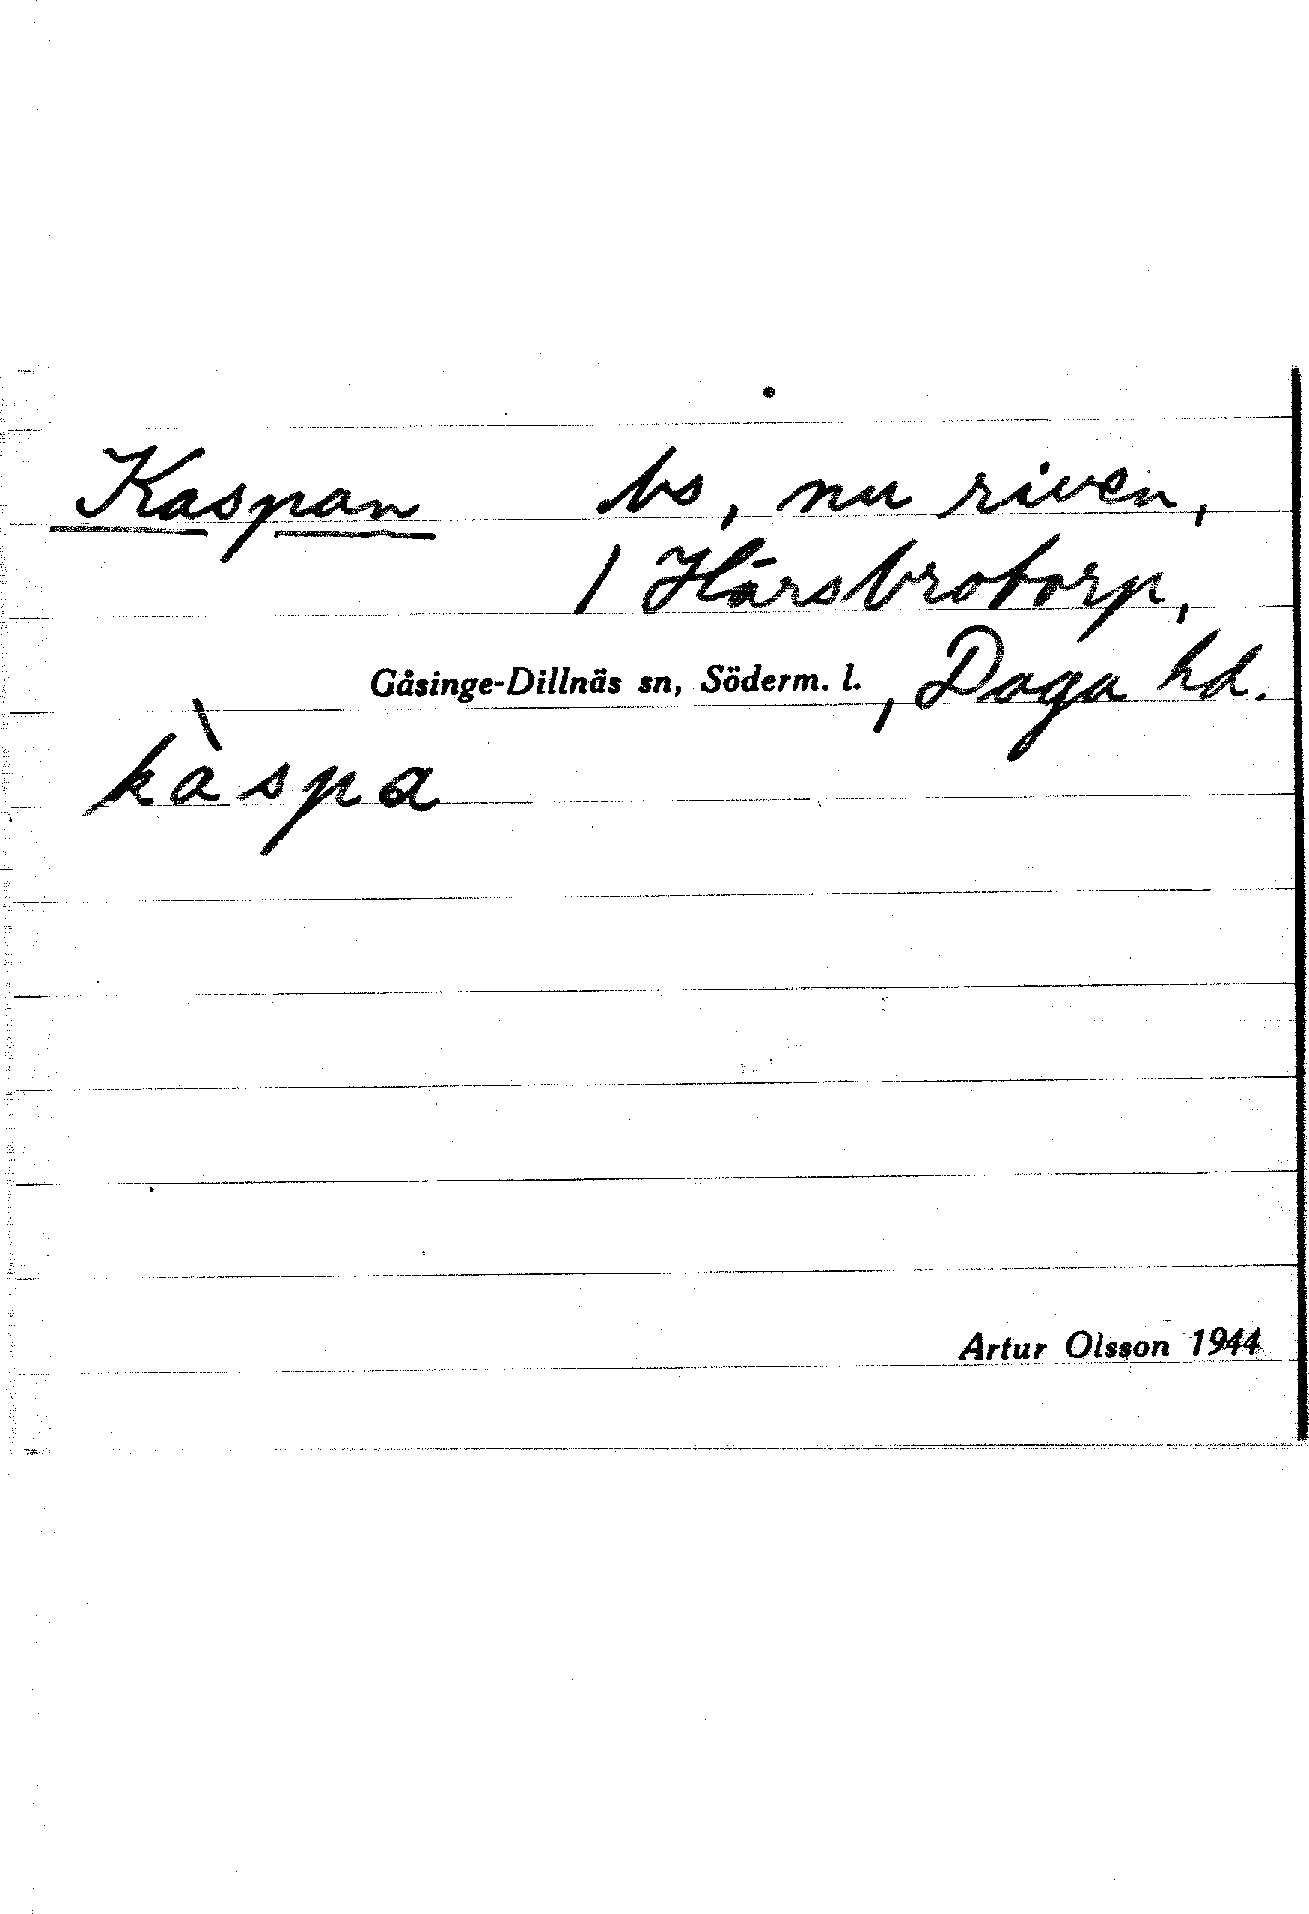 Kaspan bs, nu riven,
/ Härsbrotorp,
Gåsinge-Dillnäs sn, Söderm. l., Daga hd.
kàspa
Artur Olsson 1944